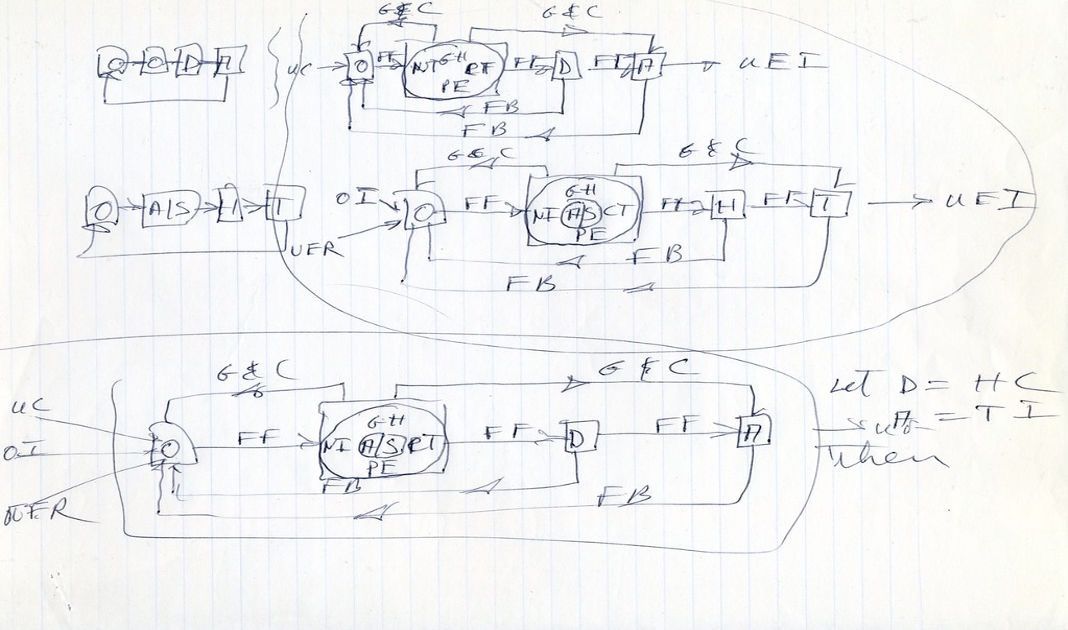 G & C G & C
O O D A
UC O FF NI GH RT PE FF D FF A UEI
FB
FB
G & C G & C
O A/S H T
OI O FF NI GH A/S CT PE FF H FF T UEI
UER
FB
FB
G & C G & C
UC
OI O FF NI GH A/S RT PE FF D FF A
UER
FB
FB
Let D = HC
A = TI
Then